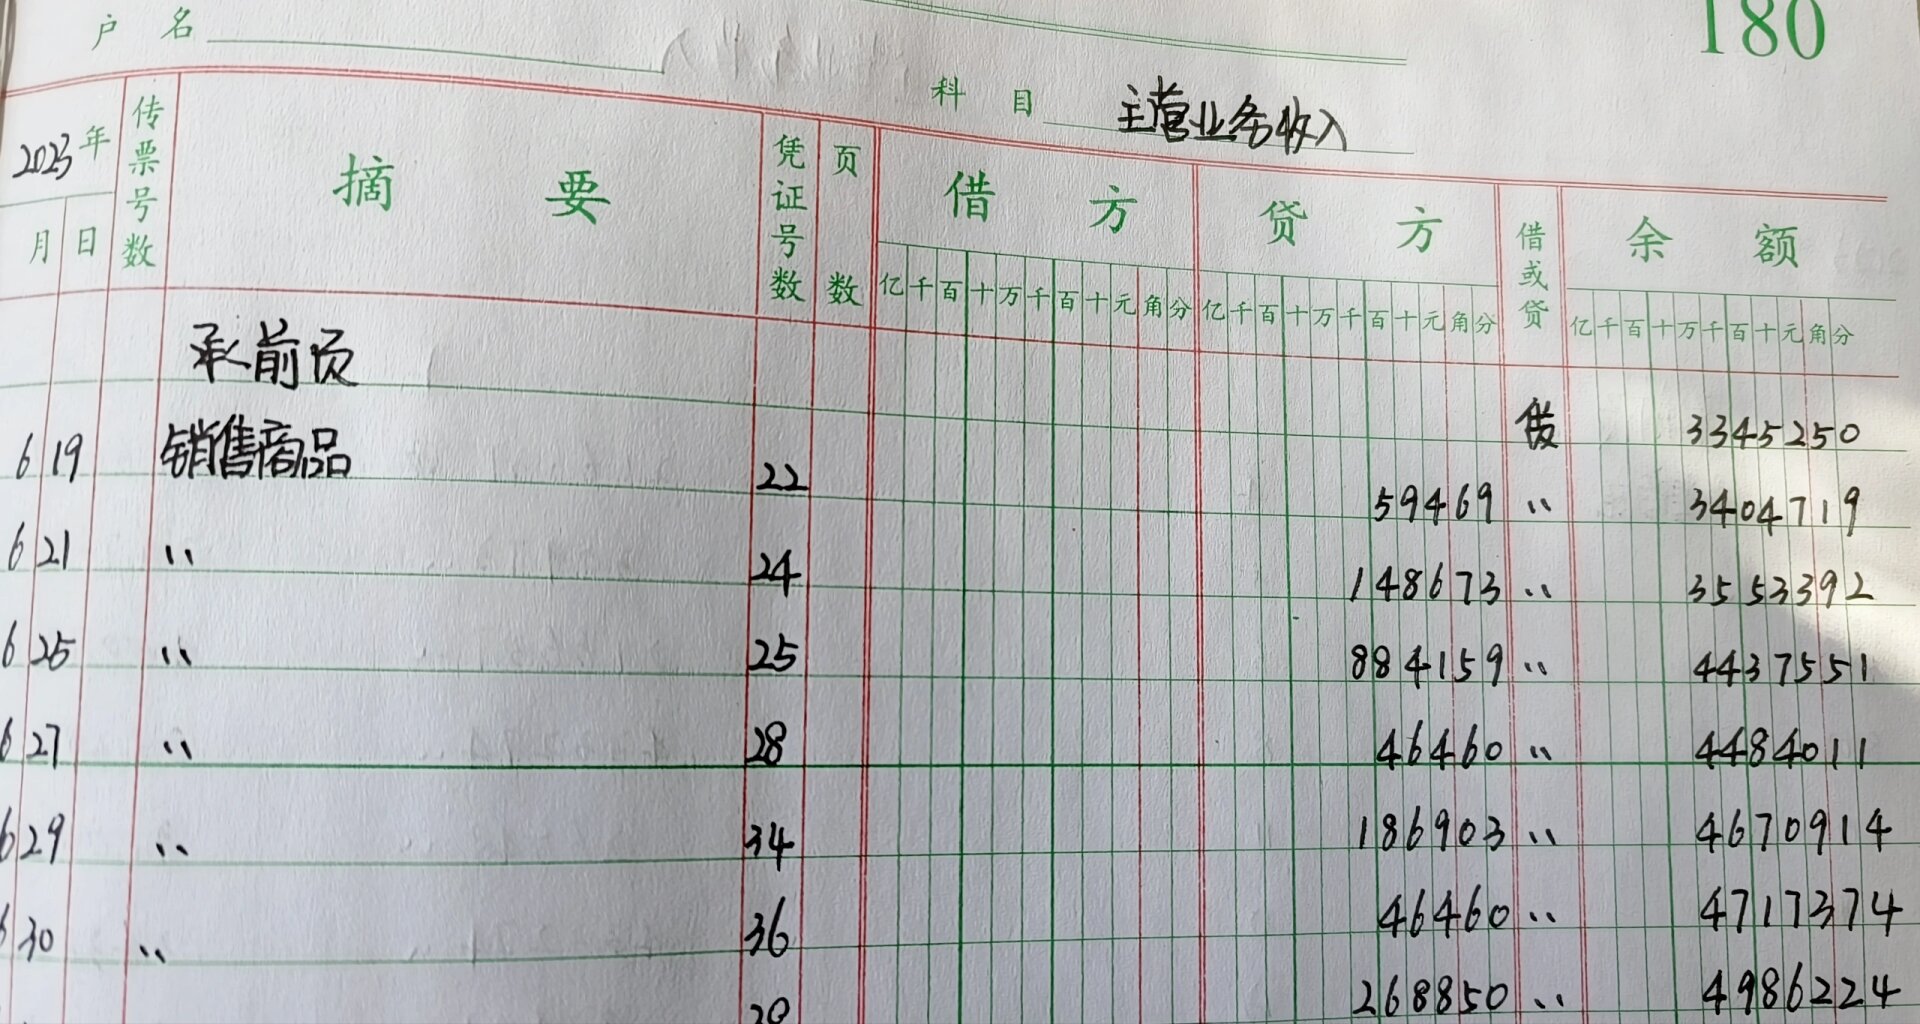 180
户 名
科 目 主营业务收入
2023年 传票号数 摘 要 凭证号数 页数 借 方 贷 方 借或贷 余 额
月 日 亿千百十万千百十元角分 亿千百十万千百十元角分 亿千百十万千百十元角分
承前页 贷 3345250
6 19 销售商品 22 59469 〃 3404719
6 21 〃 24 148673 〃 3553392
6 25 〃 25 884159 〃 4437551
6 27 〃 28 46460 〃 4484011
6 29 〃 34 186903 〃 4670914
6 30 〃 36 46460 〃 4717374
268850 〃 4986224